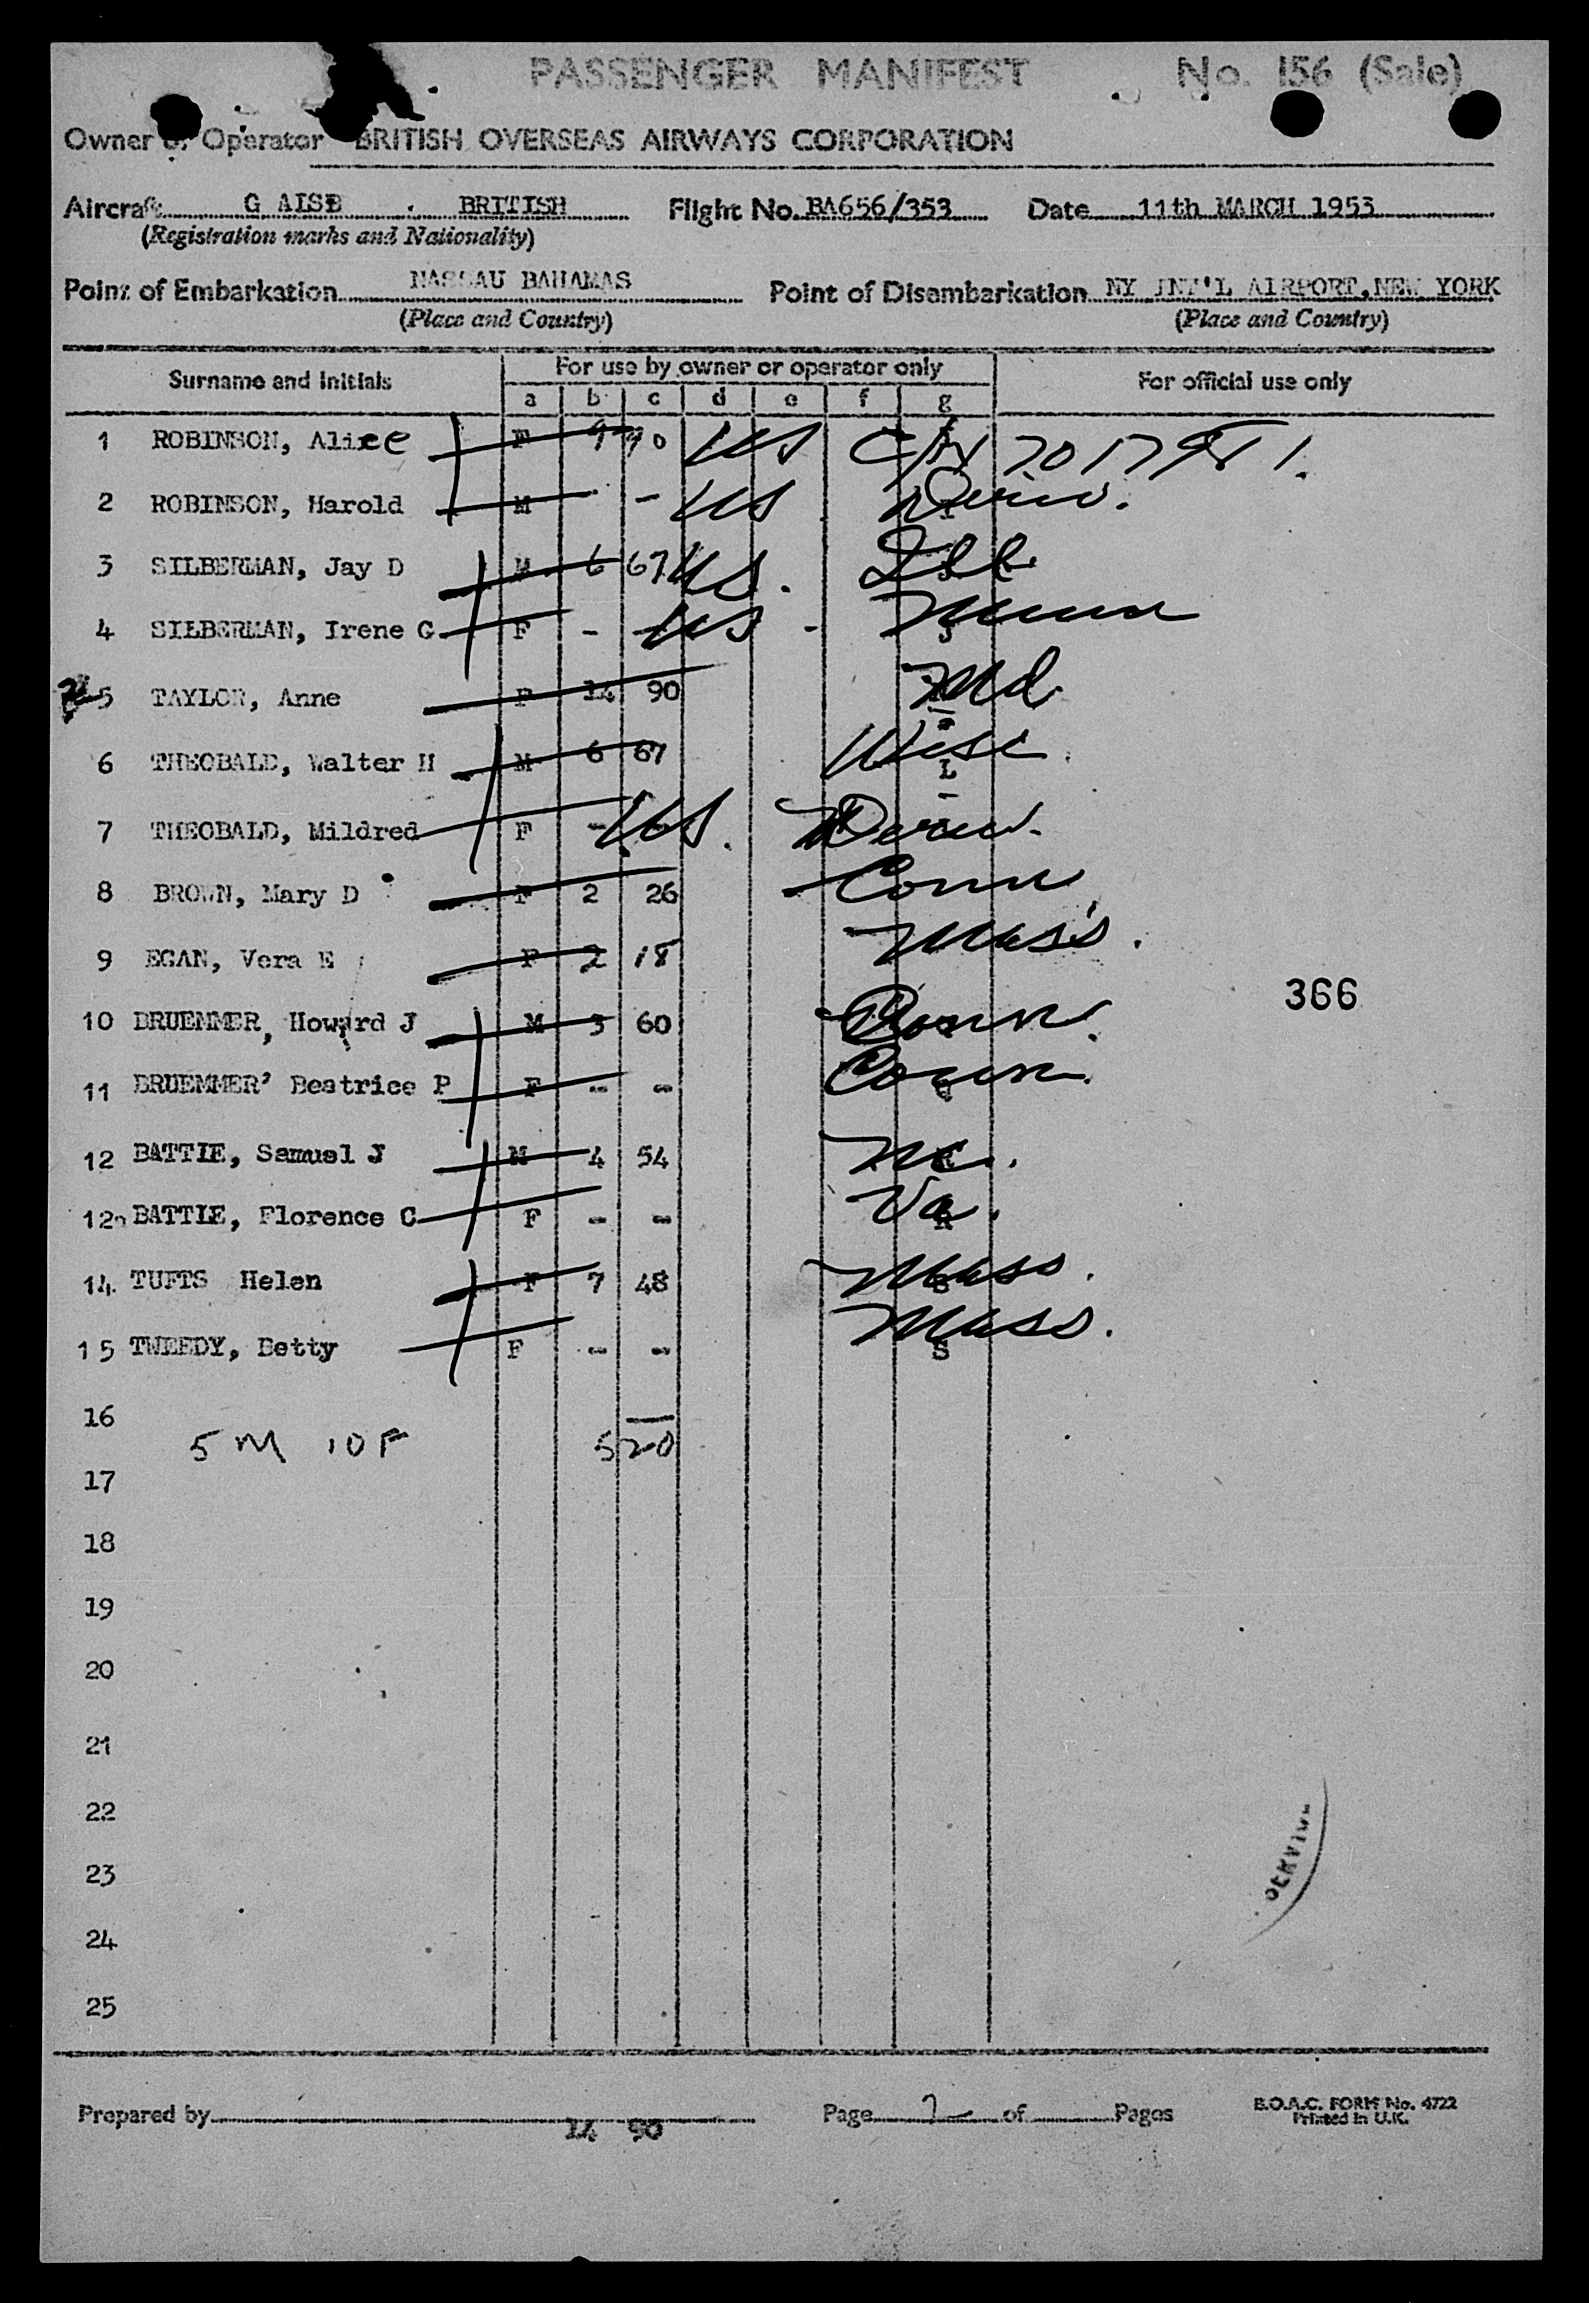 PASSENGER MANIFEST No. 156 (Sale)
Owner or Operator BRITISH OVERSEAS AIRWAYS CORPORATION
Aircraft G AISB . BRITISH Flight No. BA656/353 Date 11th MARCH 1953
(Registration marks and Nationality)
Point of Embarkation NASSAU BAHAMAS Point of Disembarkation NY INT'L AIRPORT, NEW YORK
(Place and Country) (Place and Country)
Surname and Initials For use by owner or operator only For official use only
a b c d e f g
1 ROBINSON, Alice F 9 90 US C/N
2 ROBINSON, Harold M - - US
3 SILBERMAN, Jay D M 6 67 US. Ill
4 SILBERMAN, Irene G F - - US -
5 TAYLOR, Anne F 14 90 Md
6 THEOBALD, Walter H M 6 67 Wisc L
7 THEOBALD, Mildred F - US.
8 BROWN, Mary D F 2 26 Conn
9 EGAN, Vera E F 2 18 Mass.
366
10 BRUEMMER, Howard J M 3 60 Conn.
11 BRUEMMER' Beatrice P F - - Conn.
12 BATTIE, Samuel J M 4 54 NC.
12a BATTIE, Florence C F - - Va.
14. TUFTS Helen F 7 48 Mass.
15 TWEEDY, Betty F - - Mass. S
16
5 M 10 F 520
17
18
19
20
21
22
23
24
25
Prepared by Page 2 of Pages B.O.A.C. FORM No. 4722
Printed in U.K.
14 90